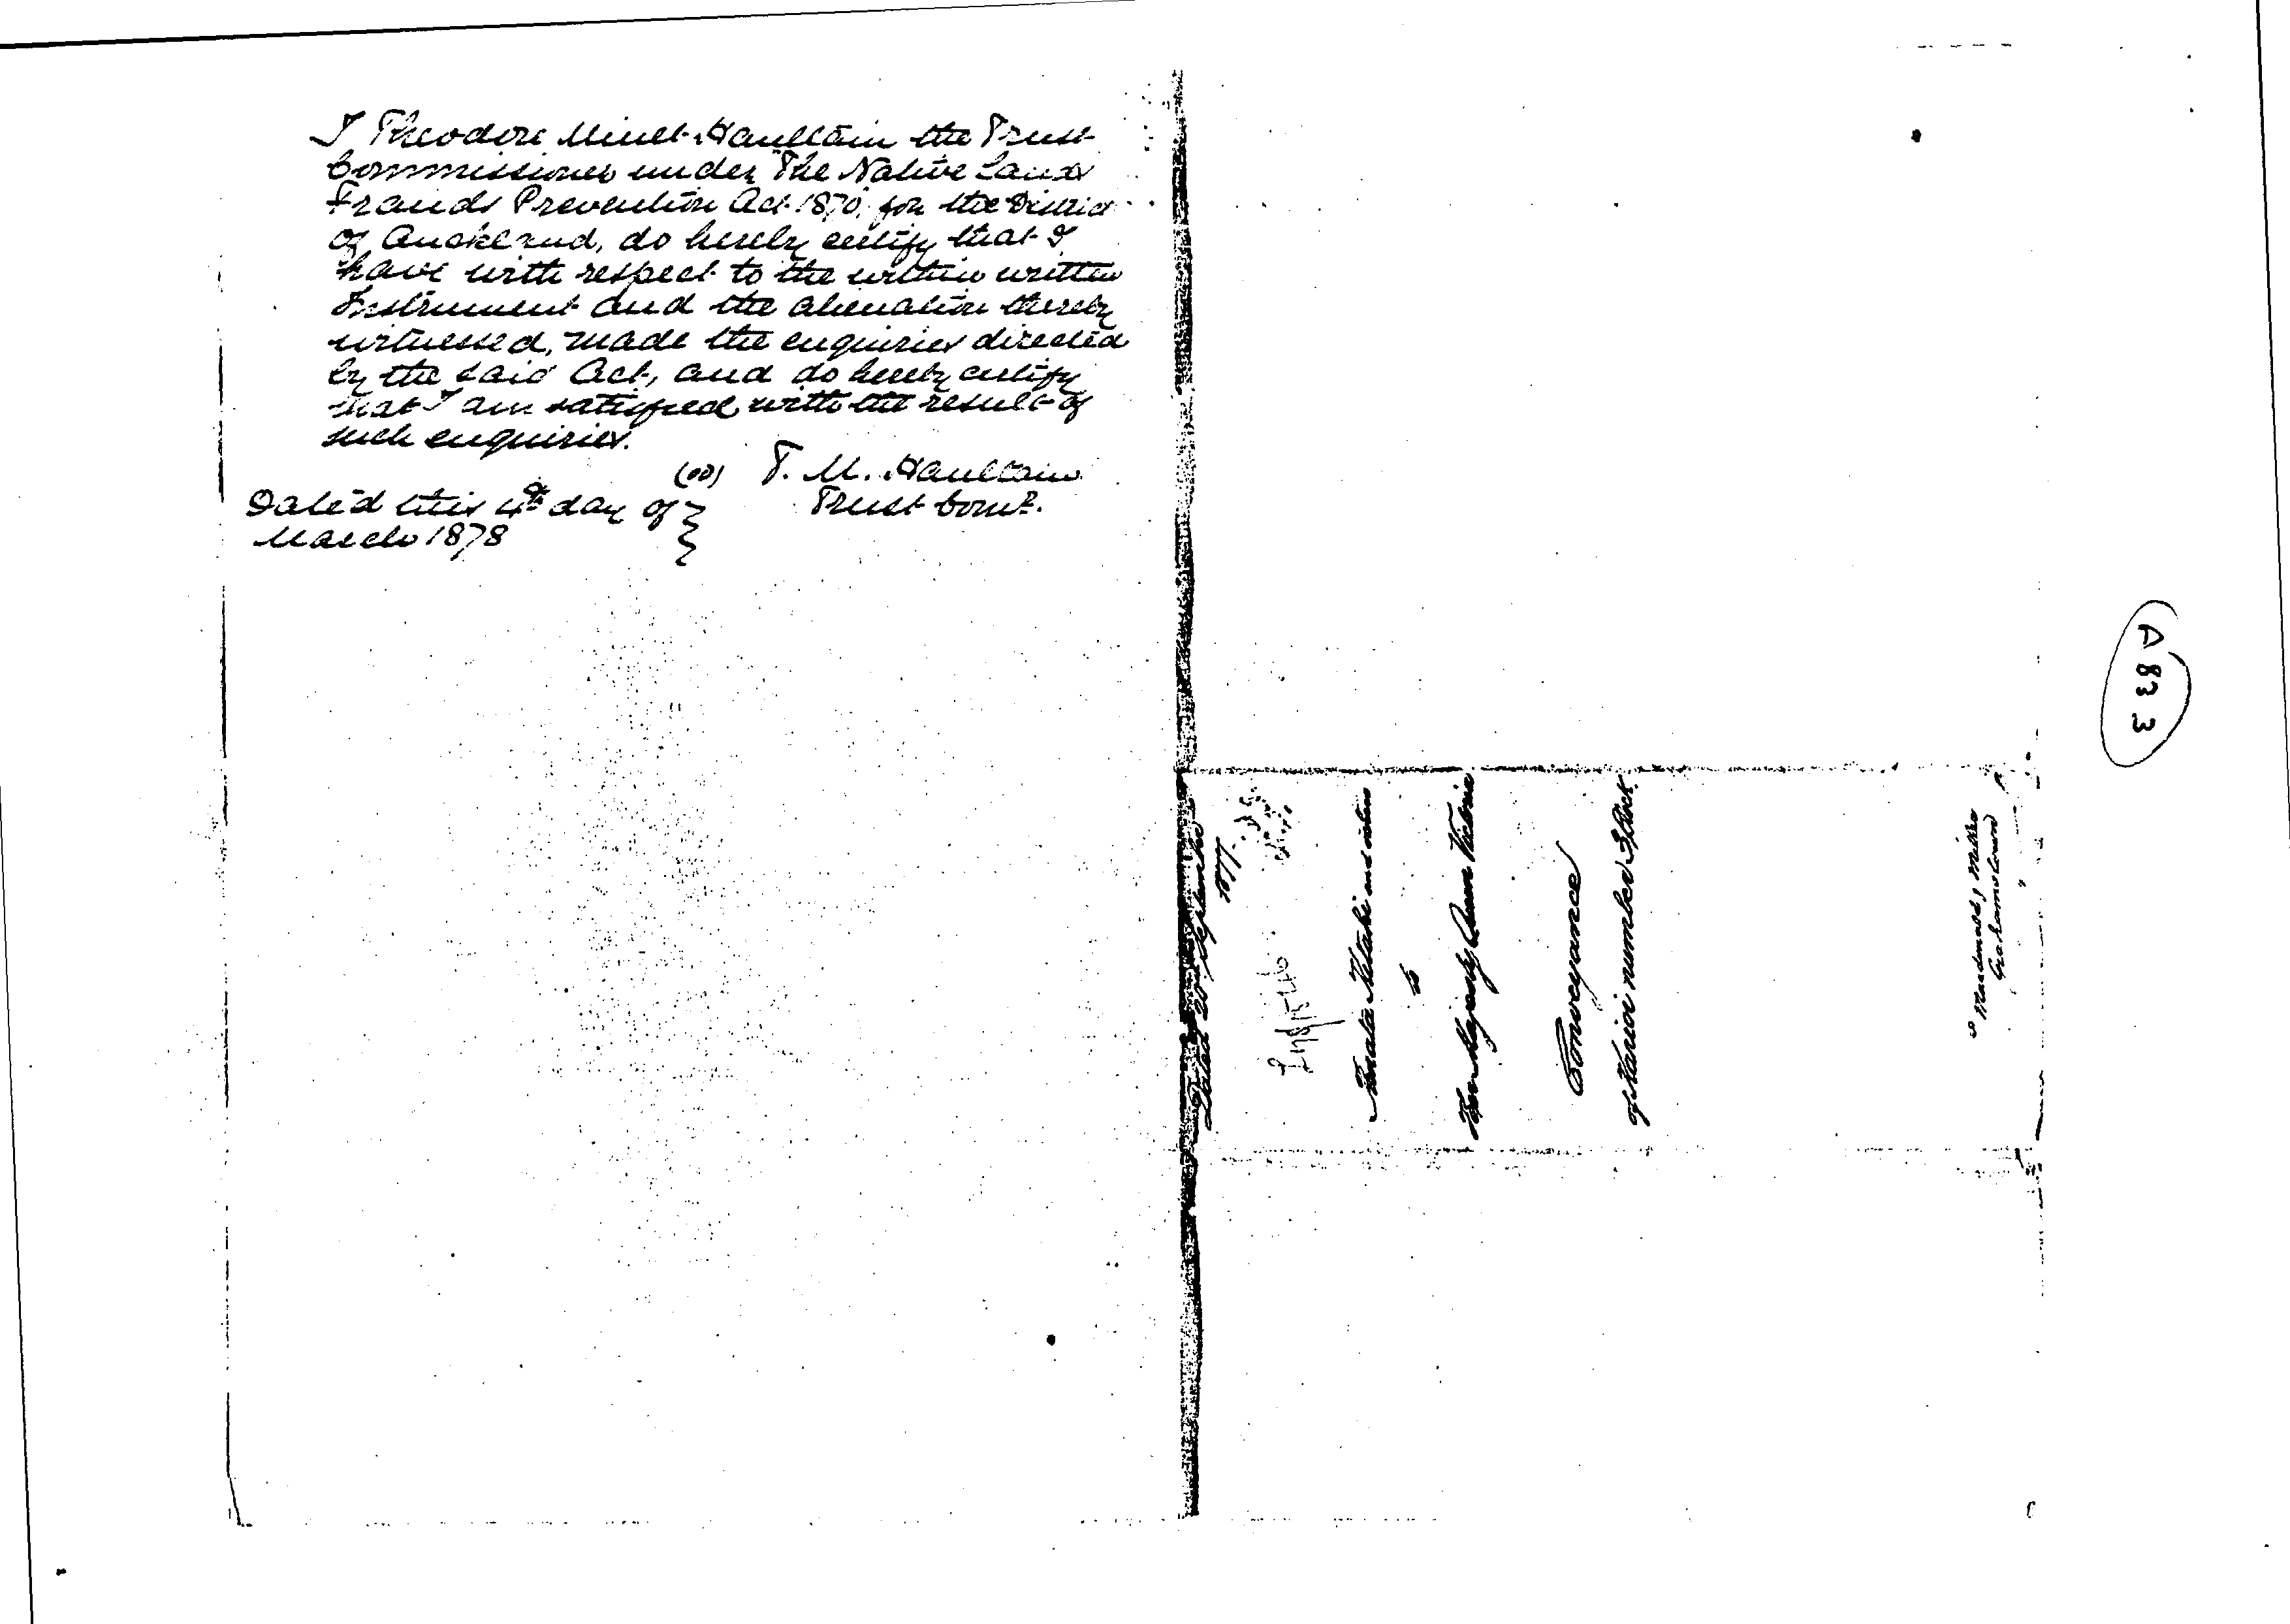 I Theodore Minet Haultain the Trust
Commissioner under "The Native Lands
Frauds Prevention Act 1870" for the District
of Auckland, do hereby certify that I
have with respect to the within written
Instrument and the alienation thereby
witnessed, made the enquiries directed
by the said Act, and do hereby certify
that I am satisfied with the result of
such enquiries.
T. M. Haultain
Trust Comr.
Dated this 4th day of
March 1878
A 833
Dated 20 September
1877.
and others
to
Her Majesty Queen Victoria
Conveyance
of Karioi number 3 Block